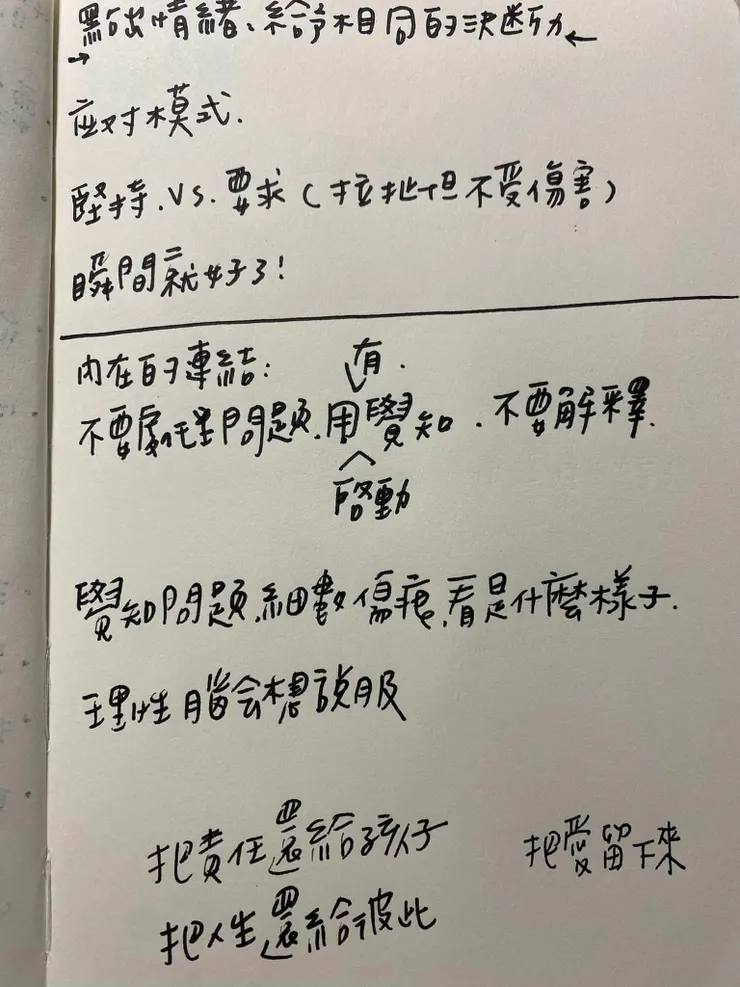 點出情緒、給予相同的決斷力
应对模式.
堅持.VS.要求(拉扯但不受傷害)
瞬間就好了!
內在的連結: 有.
不要處理問題.用覺知.不要解釋.
啓動
覺知問題.細數傷痕.看是什麼樣子.
理性腦会想說服
把責任還給孩子 把愛留下來
把人生還給彼此